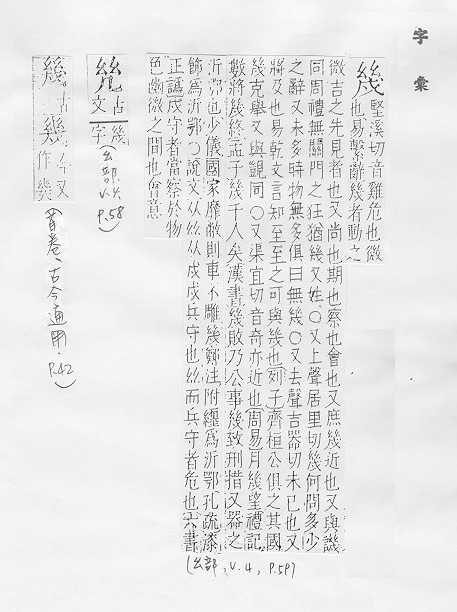 字彙
幾
堅溪切音雞危也微
也易繫辭幾者動之
微吉之先見者也又尚也期也察也會也又庶幾近也又與譏
同周禮無關門之征猶幾又姓○又上聲居里切幾何問多少
之辭又未多時物無多俱曰無幾○又去聲吉器切未已也又
將及也易乾文言知至至之可與幾也列子齊桓公俱之其國
幾克舉又與覬同○又渠宜切音奇亦近也周易月幾望禮記
數將幾終孟子幾千人矣漢書幾敗乃公事幾致刑措又器之
沂鄂也少儀國家靡敝則車不雕幾鄭注附纏為沂鄂孔疏漆
飾為沂鄂○說文从𢆶从戍戍兵守也𢆶而兵守者危也六書
正譌戍守者當察於物
色幽微之間也會意
(幺部,V.4,P.59)
古文
幾字
(幺部.V.4.P.58)
幾
古
今又作
(首卷、古今通用.P.42)